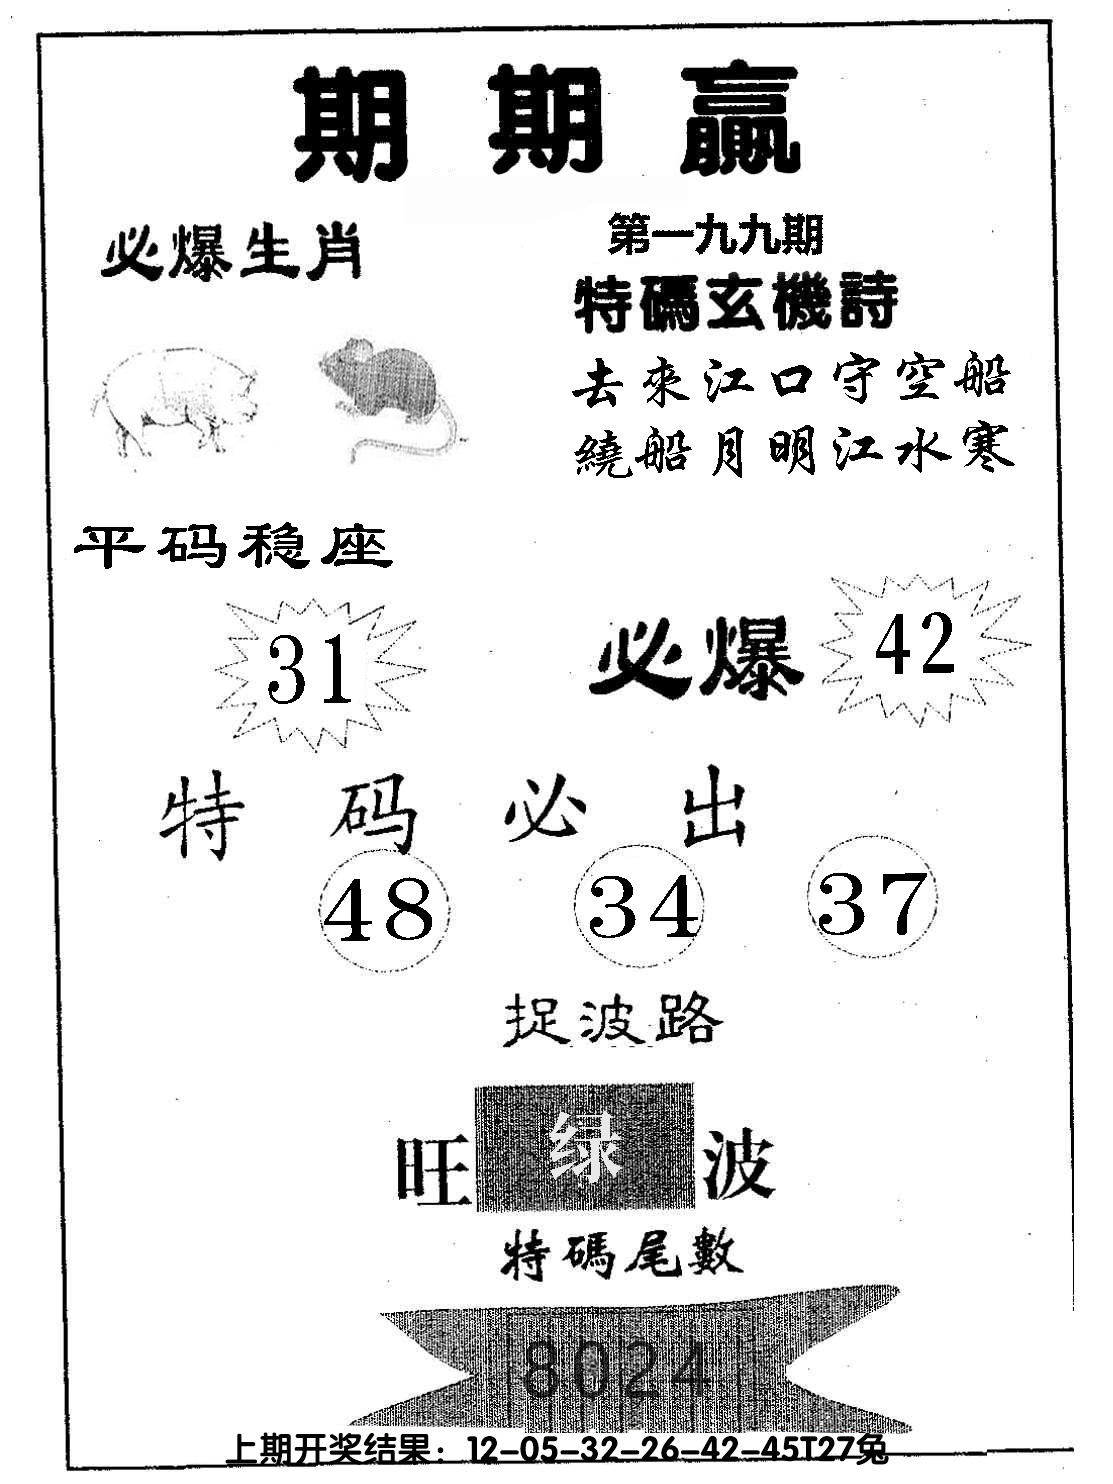 期期赢
必爆生肖
第一九九期
特碼玄機詩
去來江口守空船
繞船月明江水寒
平码稳座
31
必爆 42
特码必出
48 34 37
捉波路
旺 绿 波
特碼尾數
8024
上期开奖结果：12-05-32-26-42-45T27兔